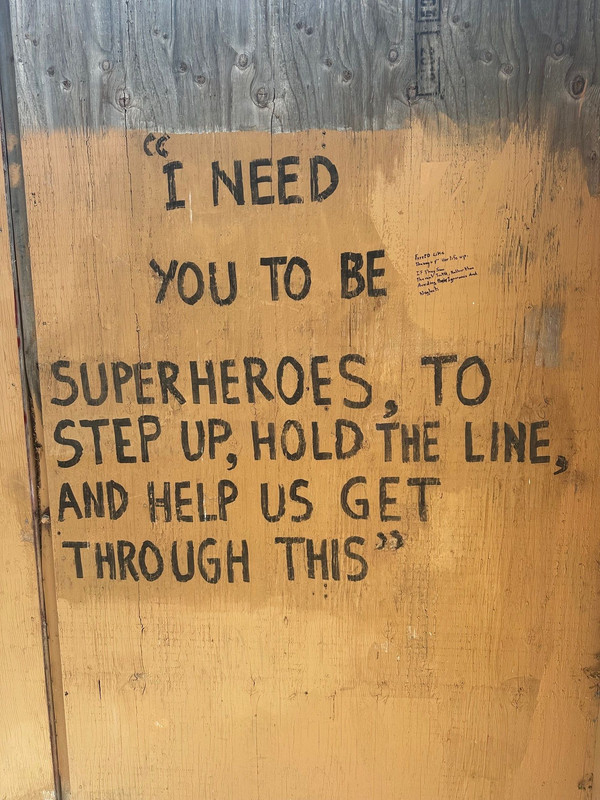 “I NEED
YOU TO BE
SUPERHEROES, TO
STEP UP, HOLD THE LINE,
AND HELP US GET
THROUGH THIS”